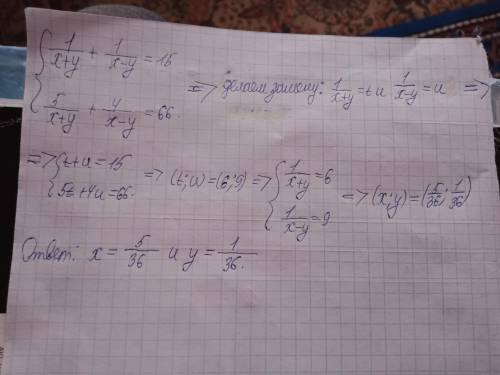 { 1/(x+y) + 1/(x-y) = 15
{ 5/(x+y) + 4/(x-y) = 66.
=> делаем замену: 1/(x+y) = t и 1/(x-y) = u =>
=> { t+u = 15
{ 5t+4u = 66.
=> (t; u) = (6; 9) => { 1/(x+y) = 6
{ 1/(x-y) = 9
=> (x; y) = (5/36; 1/36)
Ответ: x = 5/36 и y = 1/36.